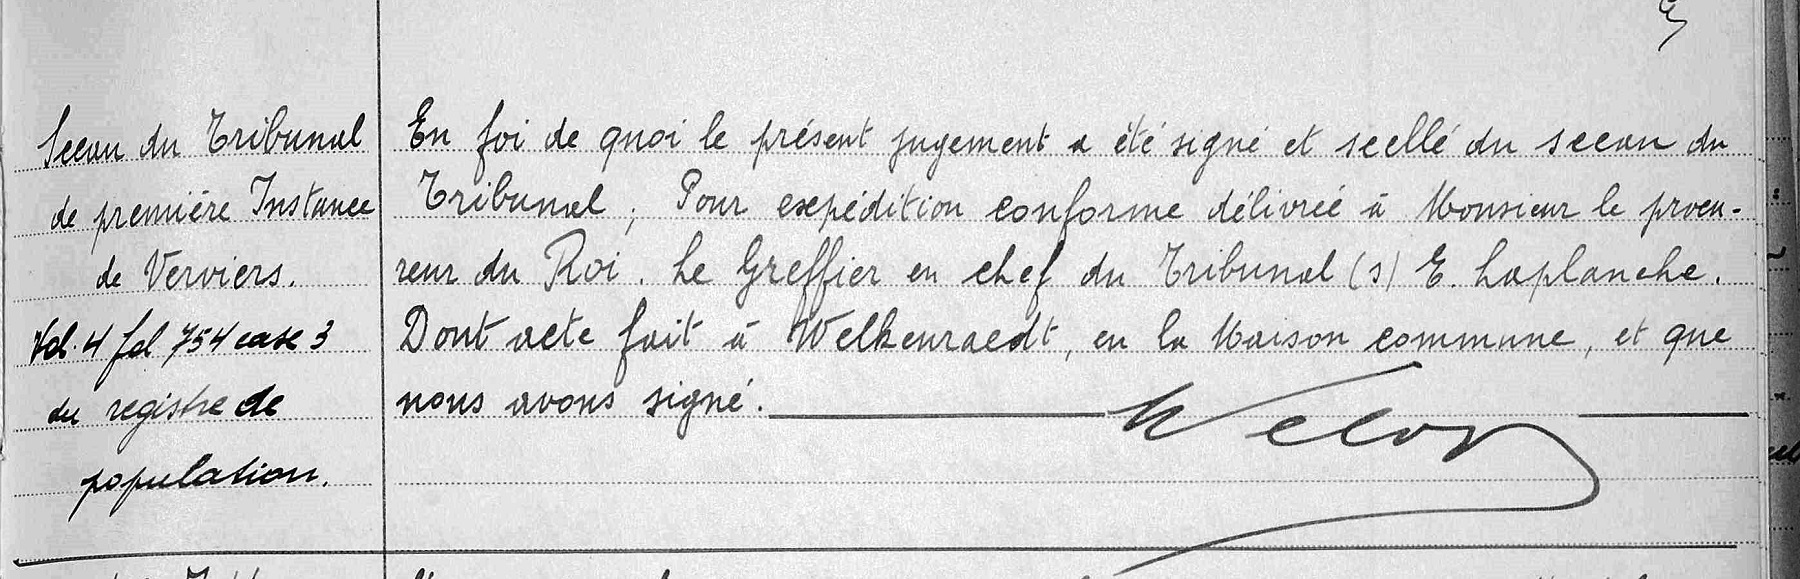 Sceau du Tribunal
de première Instance
de Verviers.
Vol. 4 fol 754 case 3
du registre de
population.
En foi de quoi le présent jugement a été signé et scellé du sceau du
Tribunal ; Pour expédition conforme délivrée à Monsieur le procu-
reur du Roi. Le Greffier en chef du Tribunal (s) E. Laplanche.
Dont acte fait à Welkenraedt, en la Maison commune, et que
nous avons signé.